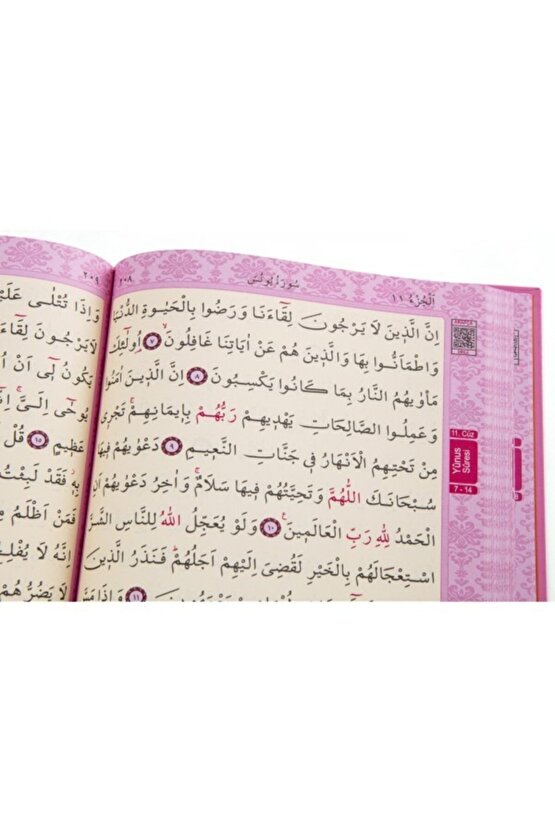 سُورَةُ يُونُسَ
اَلْجُزْءُ ١١
٢٠٨
اِنَّ الَّذ۪ينَ لَا يَرْجُونَ لِقَٓاءَنَا وَرَضُوا بِالْحَيٰوةِ الدُّنْيَا
وَاطْمَاَنُّوا بِهَا وَالَّذ۪ينَ هُمْ عَنْ اٰيَاتِنَا غَافِلُونَۙ ٧ اُو۬لٰٓئِكَ
مَأْوٰيهُمُ النَّارُ بِمَا كَانُوا يَكْسِبُونَ ٨ اِنَّ الَّذ۪ينَ اٰمَنُوا
وَعَمِلُوا الصَّالِحَاتِ يَهْد۪يهِمْ رَبُّهُمْ بِا۪يمَانِهِمْۚ تَجْر۪ي
مِنْ تَحْتِهِمُ الْاَنْهَارُ ف۪ي جَنَّاتِ النَّع۪يمِ ٩ دَعْوٰيهُمْ ف۪يهَا
سُبْحَانَكَ اللّٰهُمَّ وَتَحِيَّتُهُمْ ف۪يهَا سَلَامٌۚ وَاٰخِرُ دَعْوٰيهُمْ اَنِ
الْحَمْدُ لِلّٰهِ رَبِّ الْعَالَم۪ينَ۟ ١٠ وَلَوْ يُعَجِّلُ اللّٰهُ لِلنَّاسِ الشَّرَّ
اسْتِعْجَالَهُمْ بِالْخَيْرِ لَقُضِيَ اِلَيْهِمْ اَجَلُهُمْۜ فَنَذَرُ الَّذ۪ينَ
١١ وَاِذَا مَسَّ
11. Cüz
Yûnus
Sûresi
7 - 14
٢٠٩
وَاِذَا تُتْلٰى
لَا يَرْجُونَ
يَكُونُ ل۪ٓي اَنْ
يُوحٰٓى اِلَيَّۚ
عَظ۪يمٍ ١٥ قُلْ
بِه۪ۘ فَقَدْ لَبِثْتُ
فَمَنْ اَظْلَمُ
اِنَّهُ لَا
لَا يَضُرُّهُمْ